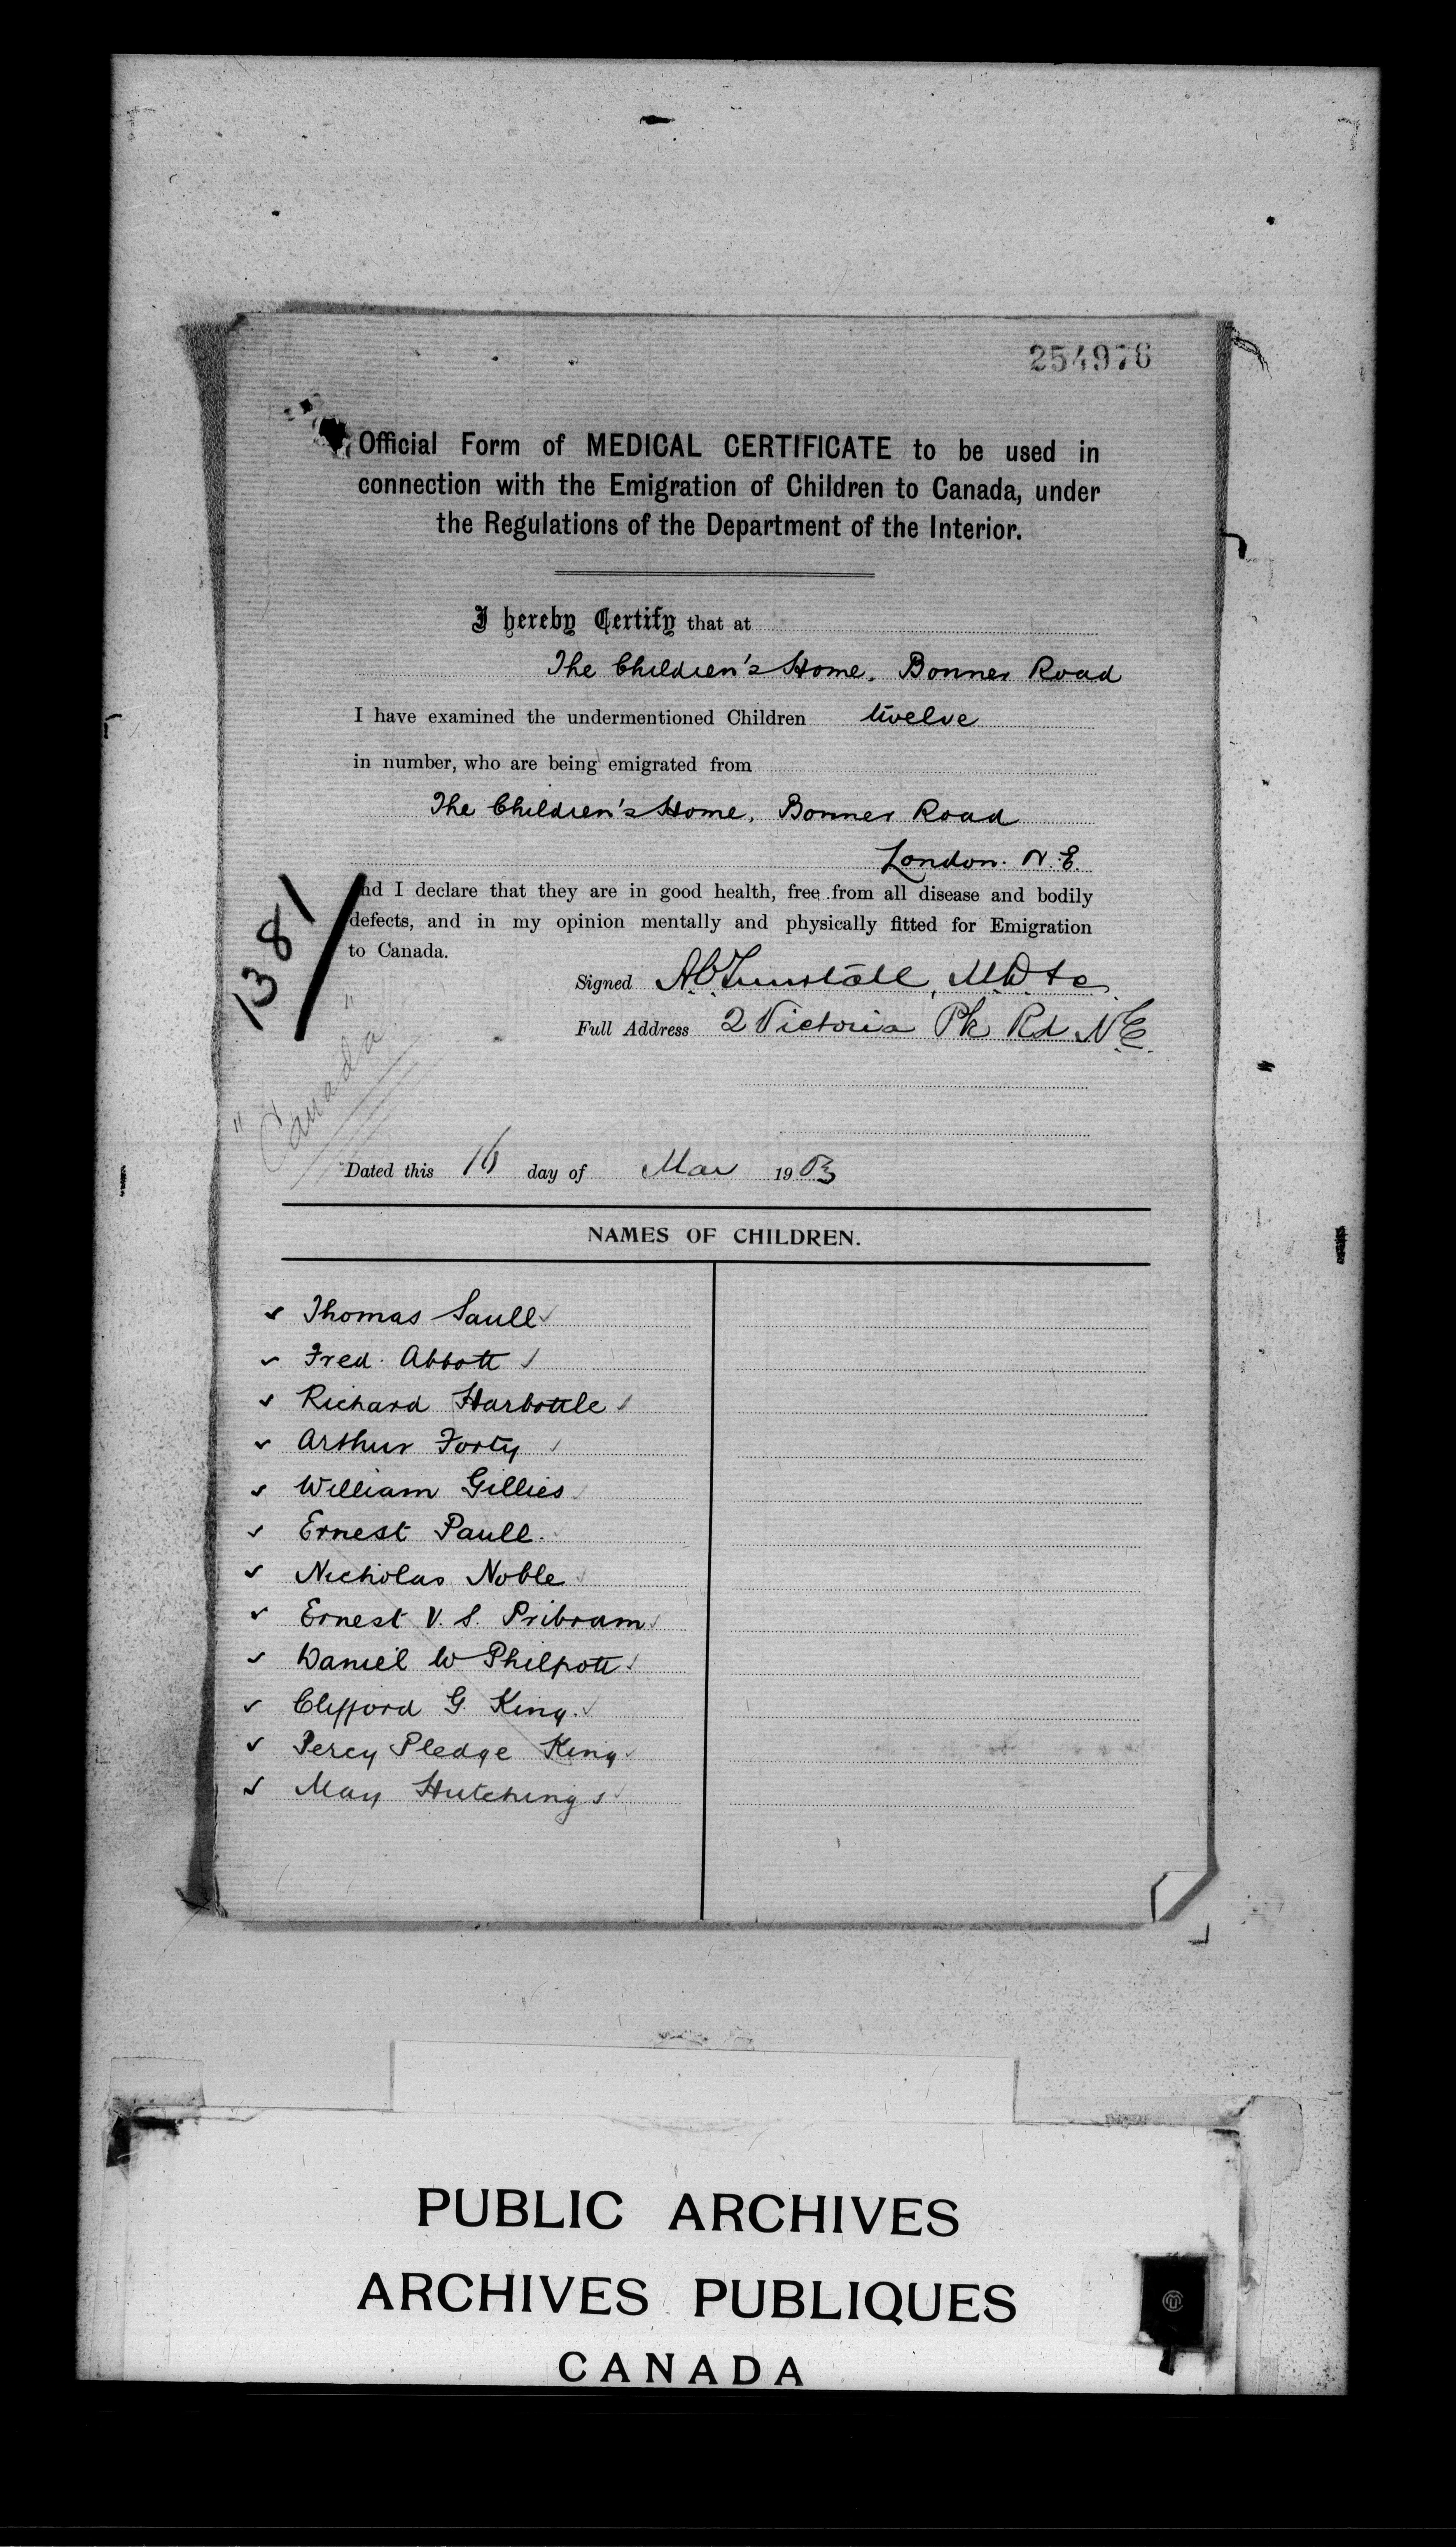 254976
Official Form of MEDICAL CERTIFICATE to be used in
connection with the Emigration of Children to Canada, under
the Regulations of the Department of the Interior.
I hereby Certify that at
The Children's Home, Bonner Road
I have examined the undermentioned Children twelve
in number, who are being emigrated from
The Children's Home, Bonner Road
London. N.E.
and I declare that they are in good health, free from all disease and bodily
defects, and in my opinion mentally and physically fitted for Emigration
to Canada.
1381
"Canada"
Signed A.C. Tunstall, M.D. &c.
Full Address 2 Victoria Pk Rd N.E.
Dated this 16 day of Mar 1903
NAMES OF CHILDREN.
Thomas Saull
Fred. Abbott
Richard Harbottle
Arthur Forty
William Gillies
Ernest Paull.
Nicholas Noble
Ernest V. S. Pribram
Daniel W Philpott
Clifford G. King.
Percy Pledge King
May Hutchings
PUBLIC ARCHIVES
ARCHIVES PUBLIQUES
CANADA